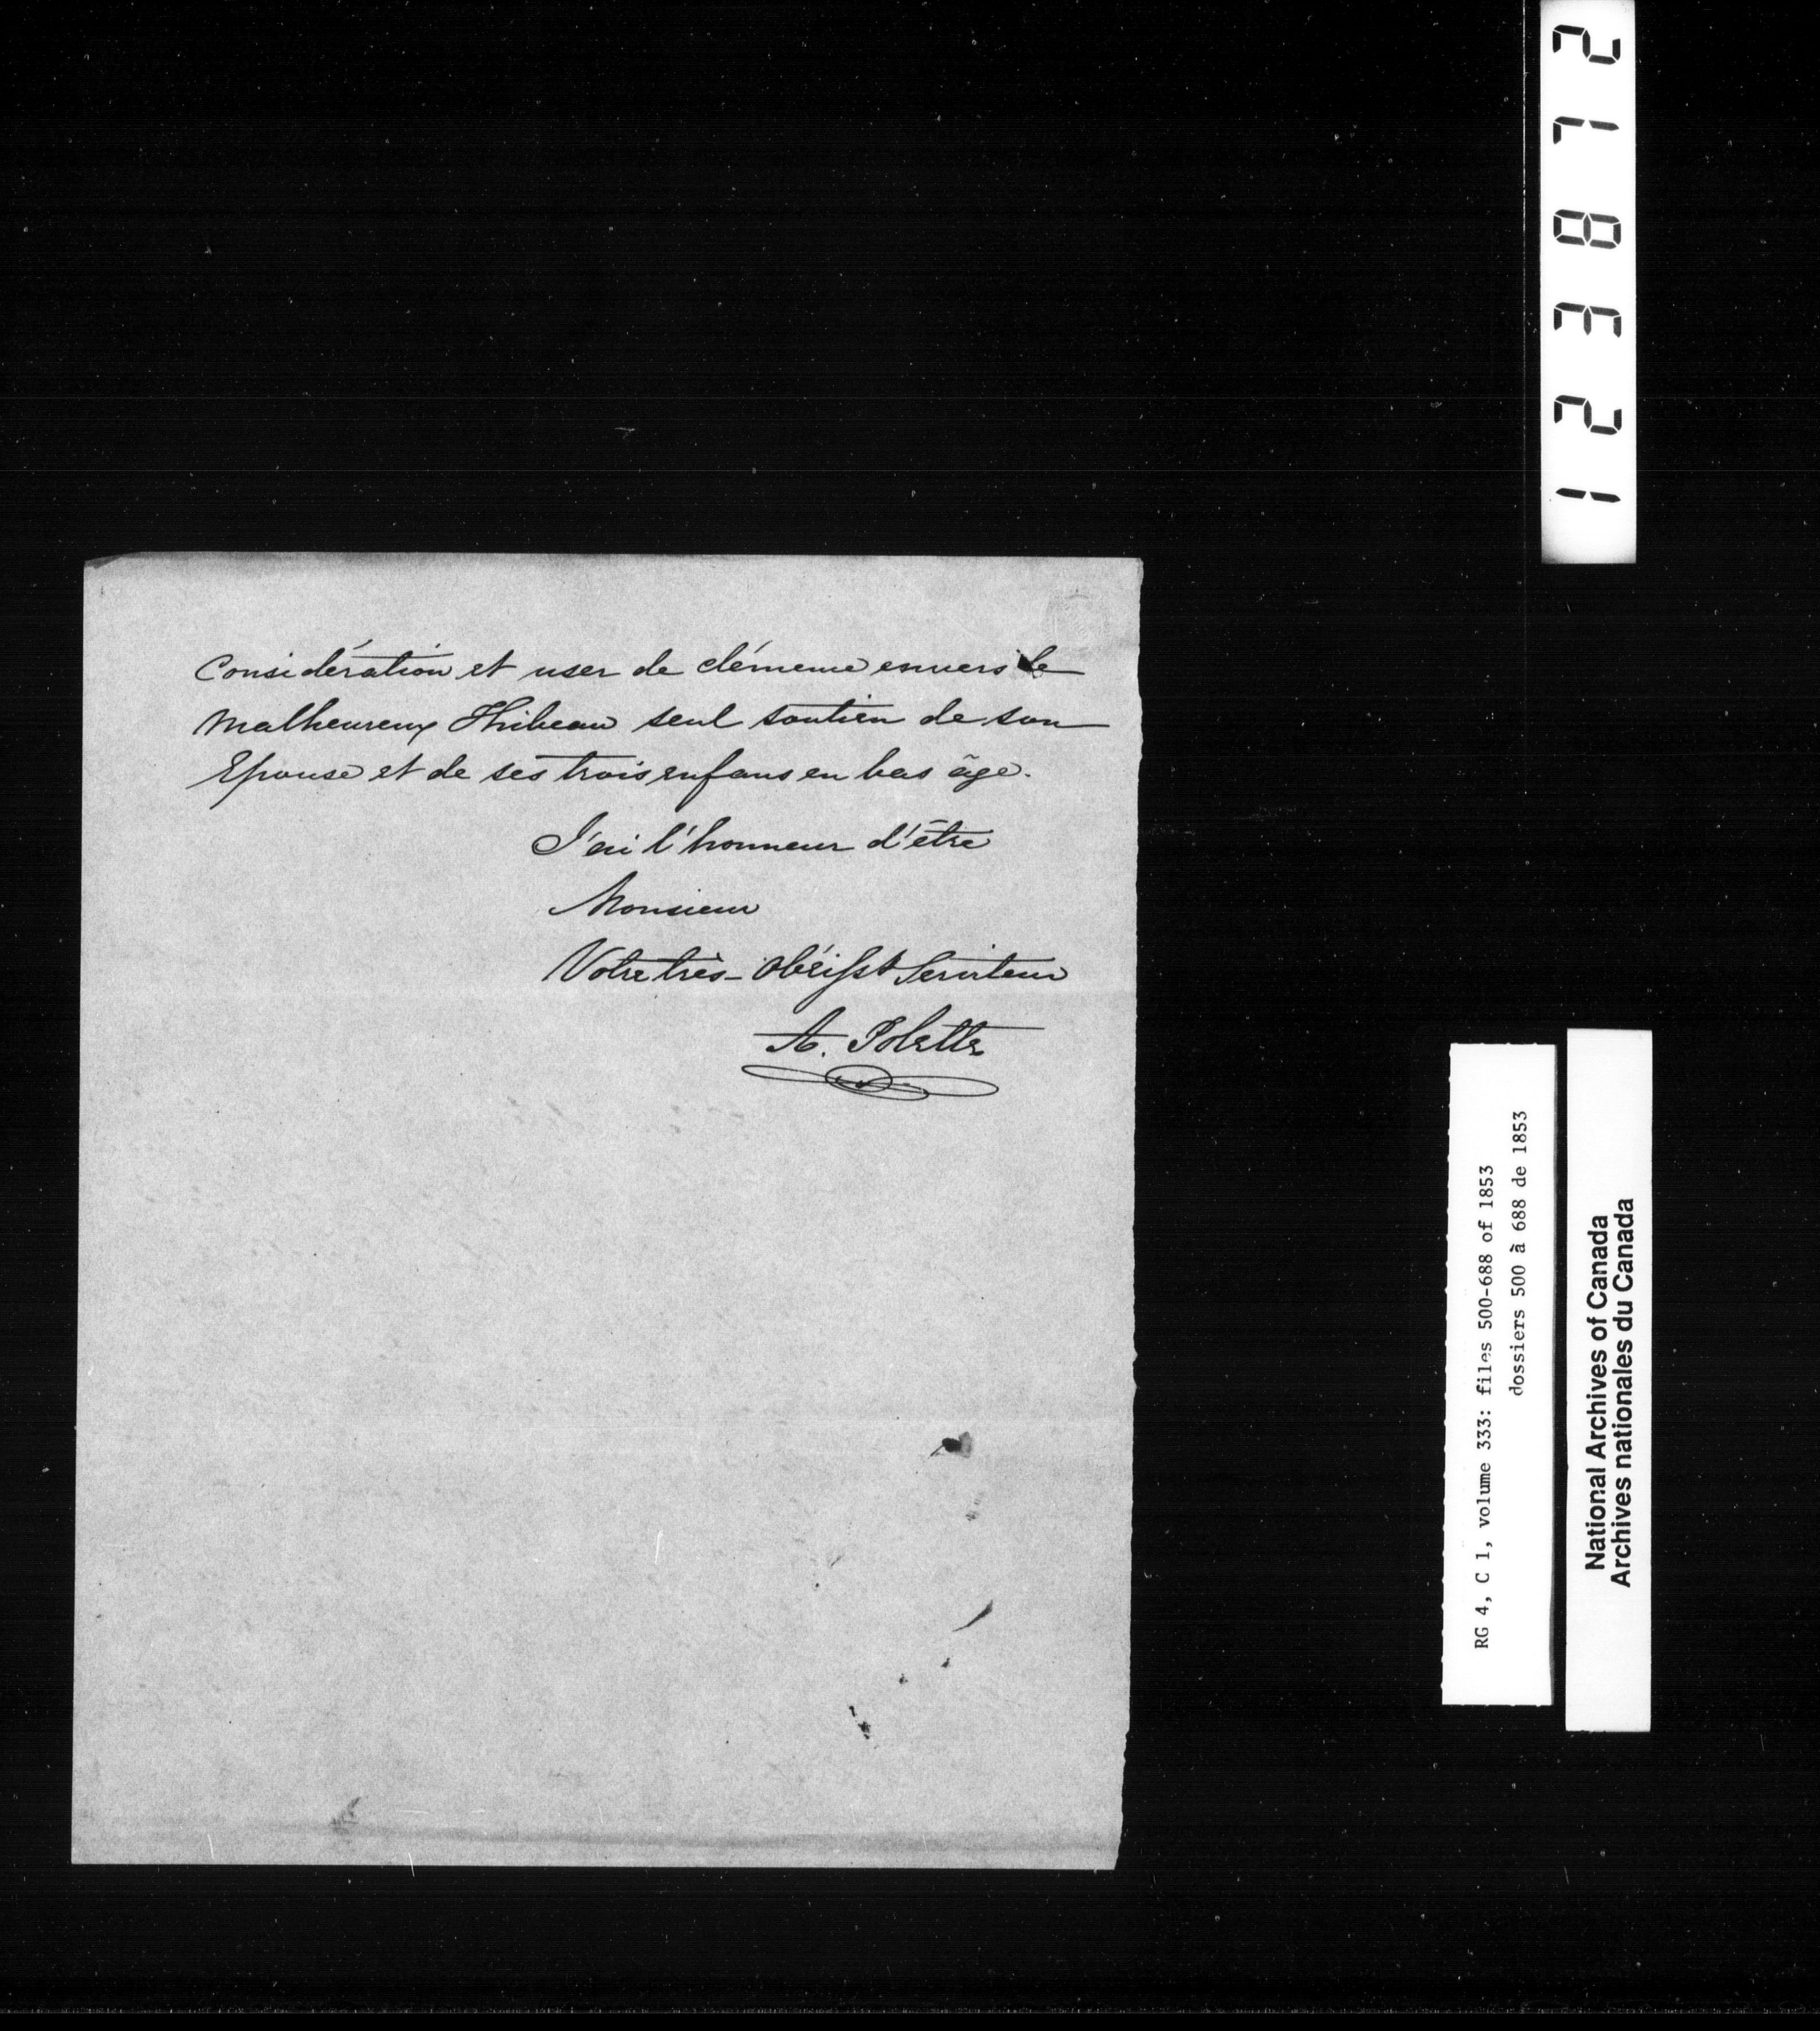 Considération et user de clémence envers le
Malheureux Thibeau seul soutien de son
Epouse et de ses trois enfans en bas âge.
J'ai l'honneur d'être
Monsieur
Votre très-obéisst Serviteur
A. Polette
123872
RG 4, C 1, volume 333: files 500-688 of 1853
dossiers 500 à 688 de 1853
National Archives of Canada
Archives nationales du Canada